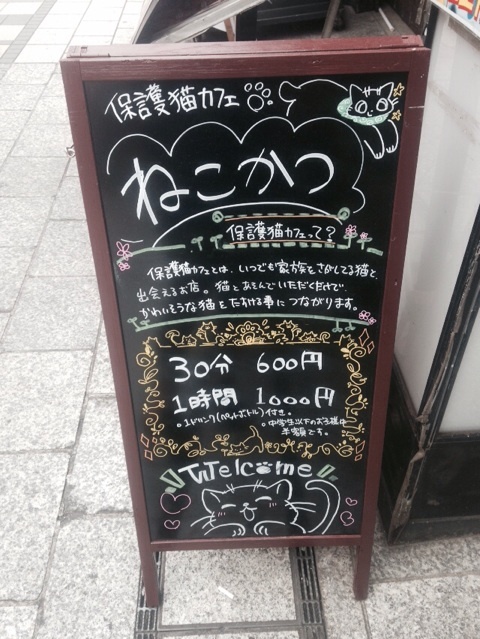 保護猫カフェ
ねこかつ
保護猫カフェって?
保護猫カフェとは、いつでも家族をさがしてる猫と、
出会えるお店。猫とあそんでいただくだけで、
かわいそうな猫をたすける事につながります。
30分 600円
1時間 1000円
○1ドリンク(ペットボトル)付き。
○中学生以下のお子様半額です。
Welcome